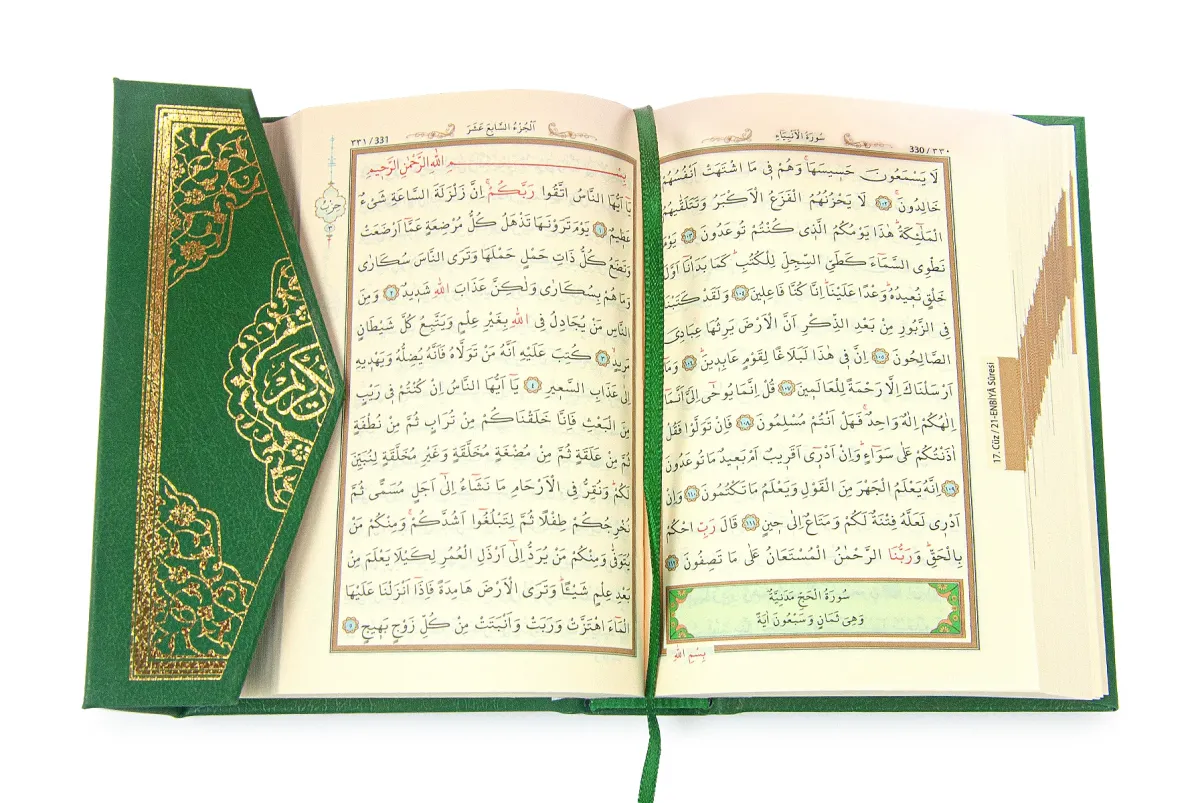 سُورَةُ الْاَنْبِيَاءِ
330 / ٣٣٠
لَا يَسْمَعُونَ حَسِيسَهَاۚ وَهُمْ فِى مَا اشْتَهَتْ اَنْفُسُهُمْ
خَالِدُونَۚ ١٠٢ لَا يَحْزُنُهُمُ الْفَزَعُ الْاَكْبَرُ وَتَتَلَقّٰيهُمُ
الْمَلٰٓئِكَةُۜ هٰذَا يَوْمُكُمُ الَّذِى كُنْتُمْ تُوعَدُونَ ١٠٣ يَوْمَ
نَطْوِى السَّمَٓاءَ كَطَىِّ السِّجِلِّ لِلْكُتُبِۜ كَمَا بَدَأْنَٓا اَوَّلَ
خَلْقٍ نُعِيدُهُۜ وَعْدًا عَلَيْنَاۜ اِنَّا كُنَّا فَاعِلِينَ ١٠٤ وَلَقَدْ كَتَبْنَا
فِى الزَّبُورِ مِنْ بَعْدِ الذِّكْرِ اَنَّ الْاَرْضَ يَرِثُهَا عِبَادِىَ
الصَّالِحُونَ ١٠٥ اِنَّ فِى هٰذَا لَبَلَاغًا لِقَوْمٍ عَابِدِينَۜ ١٠٦ وَمَٓا
اَرْسَلْنَاكَ اِلَّا رَحْمَةً لِلْعَالَمِينَ ١٠٧ قُلْ اِنَّمَا يُوحٰٓى اِلَىَّ اَنَّمَٓا
اِلٰهُكُمْ اِلٰهٌ وَاحِدٌۚ فَهَلْ اَنْتُمْ مُسْلِمُونَ ١٠٨ فَاِنْ تَوَلَّوْا فَقُلْ
اٰذَنْتُكُمْ عَلٰى سَوَٓاءٍۜ وَاِنْ اَدْرِٓى اَقَرِيبٌ اَمْ بَعِيدٌ مَا تُوعَدُونَ
١٠٩ اِنَّهُ يَعْلَمُ الْجَهْرَ مِنَ الْقَوْلِ وَيَعْلَمُ مَا تَكْتُمُونَ ١١٠ وَاِنْ
اَدْرِى لَعَلَّهُ فِتْنَةٌ لَكُمْ وَمَتَاعٌ اِلٰى حِينٍ ١١١ قَالَ رَبِّ احْكُمْ
بِالْحَقِّۜ وَرَبُّنَا الرَّحْمٰنُ الْمُسْتَعَانُ عَلٰى مَا تَصِفُونَ ١١٢
سُورَةُ الْحَجِّ مَدَنِيَّةٌ
وَهِىَ ثَمَانٍ وَسَبْعُونَ اٰيَةً
بِسْمِ اللّٰهِ
17. Cüz / 21-ENBİYÂ Sûresi
اَلْجُزْءُ السَّابِعَ عَشَرَ
٣٣١ / 331
بِسْمِ اللّٰهِ الرَّحْمٰنِ الرَّحِيمِ
يَٓا اَيُّهَا النَّاسُ اتَّقُوا رَبَّكُمْۚ اِنَّ زَلْزَلَةَ السَّاعَةِ شَىْءٌ
عَظِيمٌ ١ يَوْمَ تَرَوْنَهَا تَذْهَلُ كُلُّ مُرْضِعَةٍ عَمَّٓا اَرْضَعَتْ
وَتَضَعُ كُلُّ ذَاتِ حَمْلٍ حَمْلَهَا وَتَرَى النَّاسَ سُكَارٰى
وَمَا هُمْ بِسُكَارٰى وَلٰكِنَّ عَذَابَ اللّٰهِ شَدِيدٌ ٢ وَمِنَ
النَّاسِ مَنْ يُجَادِلُ فِى اللّٰهِ بِغَيْرِ عِلْمٍ وَيَتَّبِعُ كُلَّ شَيْطَانٍ
مَرِيدٍۙ ٣ كُتِبَ عَلَيْهِ اَنَّهُ مَنْ تَوَلَّاهُ فَاَنَّهُ يُضِلُّهُ وَيَهْدِيهِ
اِلٰى عَذَابِ السَّعِيرِ ٤ يَٓا اَيُّهَا النَّاسُ اِنْ كُنْتُمْ فِى رَيْبٍ
مِنَ الْبَعْثِ فَاِنَّا خَلَقْنَاكُمْ مِنْ تُرَابٍ ثُمَّ مِنْ نُطْفَةٍ
ثُمَّ مِنْ عَلَقَةٍ ثُمَّ مِنْ مُضْغَةٍ مُخَلَّقَةٍ وَغَيْرِ مُخَلَّقَةٍ لِنُبَيِّنَ
لَكُمْۜ وَنُقِرُّ فِى الْاَرْحَامِ مَا نَشَٓاءُ اِلٰٓى اَجَلٍ مُسَمًّى ثُمَّ
نُخْرِجُكُمْ طِفْلًا ثُمَّ لِتَبْلُغُٓوا اَشُدَّكُمْۚ وَمِنْكُمْ مَنْ
يُتَوَفّٰى وَمِنْكُمْ مَنْ يُرَدُّ اِلٰٓى اَرْذَلِ الْعُمُرِ لِكَيْلَا يَعْلَمَ مِنْ
بَعْدِ عِلْمٍ شَيْـًٔاۜ وَتَرَى الْاَرْضَ هَامِدَةً فَاِذَٓا اَنْزَلْنَا عَلَيْهَا
الْمَٓاءَ اهْتَزَّتْ وَرَبَتْ وَاَنْبَتَتْ مِنْ كُلِّ زَوْجٍ بَهِيجٍ ٥
حِزْبُ